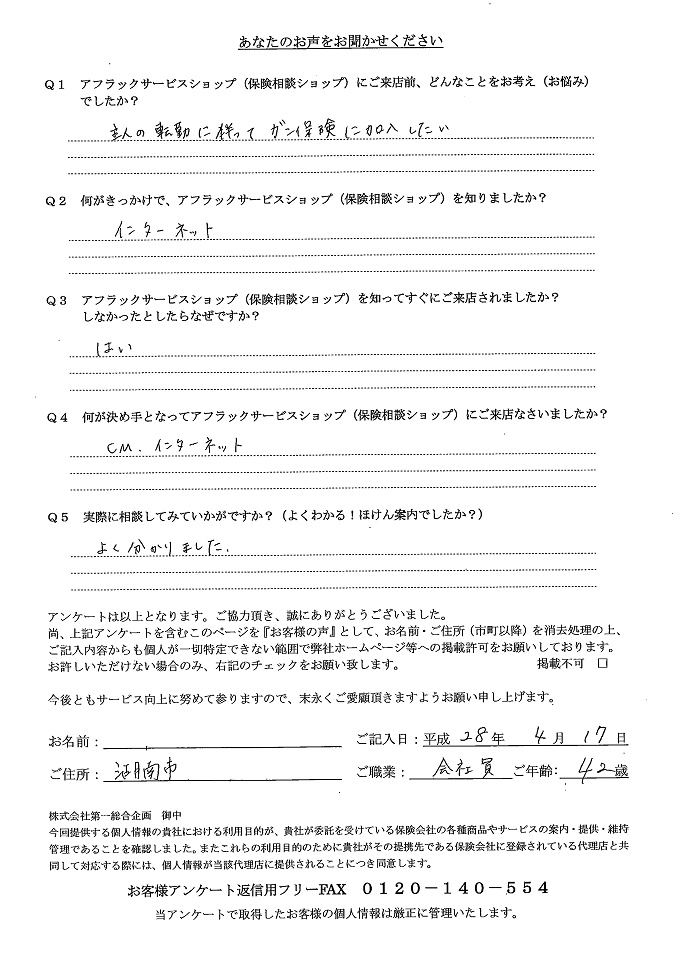 あなたのお声をお聞かせください
Q1 アフラックサービスショップ(保険相談ショップ)にご来店前、どんなことをお考え(お悩み)
でしたか?
主人の転勤に伴って ガン保険に加入したい
Q2 何がきっかけで、アフラックサービスショップ(保険相談ショップ)を知りましたか?
インターネット
Q3 アフラックサービスショップ(保険相談ショップ)を知ってすぐにご来店されましたか?
しなかったとしたらなぜですか?
はい
Q4 何が決め手となってアフラックサービスショップ(保険相談ショップ)にご来店なさいましたか?
CM. インターネット
Q5 実際に相談してみていかがですか?(よくわかる!ほけん案内でしたか?)
よく分かりました.
アンケートは以上となります。ご協力頂き、誠にありがとうございました。
尚、上記アンケートを含むこのページを『お客様の声』として、お名前・ご住所(市町以降)を消去処理の上、
ご記入内容からも個人が一切特定できない範囲で弊社ホームページ等への掲載許可をお願いしております。
お許しいただけない場合のみ、右記のチェックをお願い致します。 掲載不可 □
今後ともサービス向上に努めて参りますので、末永くご愛顧頂きますようお願い申し上げます。
お名前: ご記入日:平成 28 年 4 月 17 日
ご住所: 江南市 ご職業: 会社員 ご年齢: 42 歳
株式会社第一総合企画 御中
今回提供する個人情報の貴社における利用目的が、貴社が委託を受けている保険会社の各種商品やサービスの案内・提供・維持
管理であることを確認しました。またこれらの利用目的のために貴社がその提携先である保険会社に登録されている代理店と共
同して対応する際には、個人情報が当該代理店に提供されることにつき同意します。
お客様アンケート返信用フリーFAX 0120-140-554
当アンケートで取得したお客様の個人情報は厳正に管理いたします。